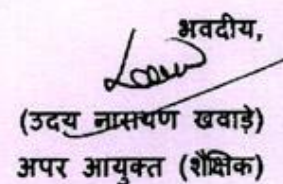 भवदीय,
(उदय नारायण खवाड़े)
अपर आयुक्त (शैक्षिक)